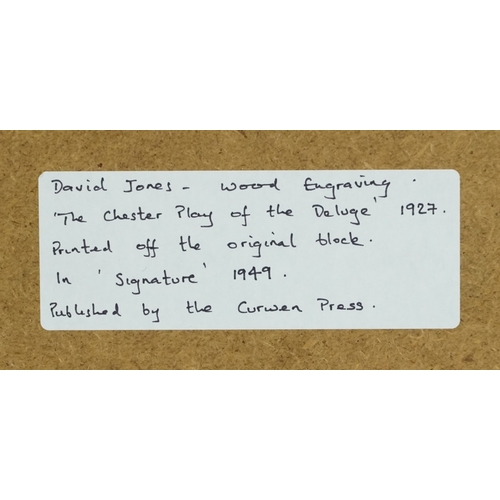 David Jones - Wood Engraving.
'The Chester Play of the Deluge' 1927.
Printed off the original block.
In 'Signature' 1949.
Published by the Curwen Press.